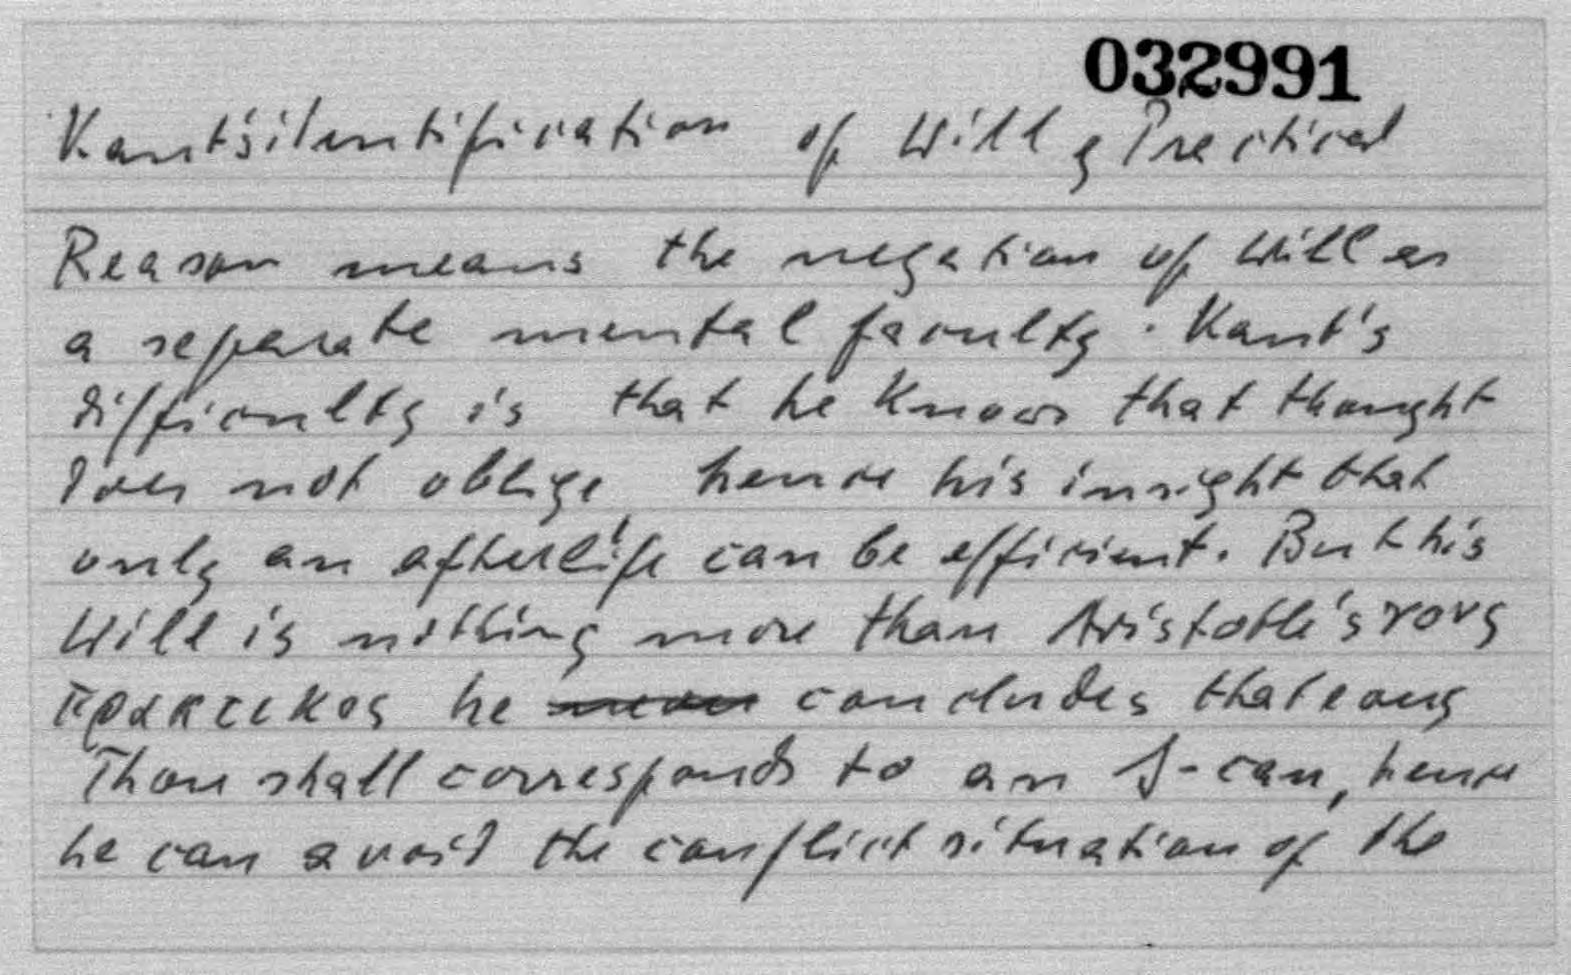 032991
Kant's identification of Will & Practical
Reason means the negation of Will as
a separate mental faculty. Kant's
difficulty is that he knows that thought
does not oblige, hence his insight that
only an afterlife can be efficient. But his
Will is nothing more than Aristotle's νους
πρακτικος he concludes that
Thou shall corresponds to an I-can, hence
he can avoid the conflict situation of the